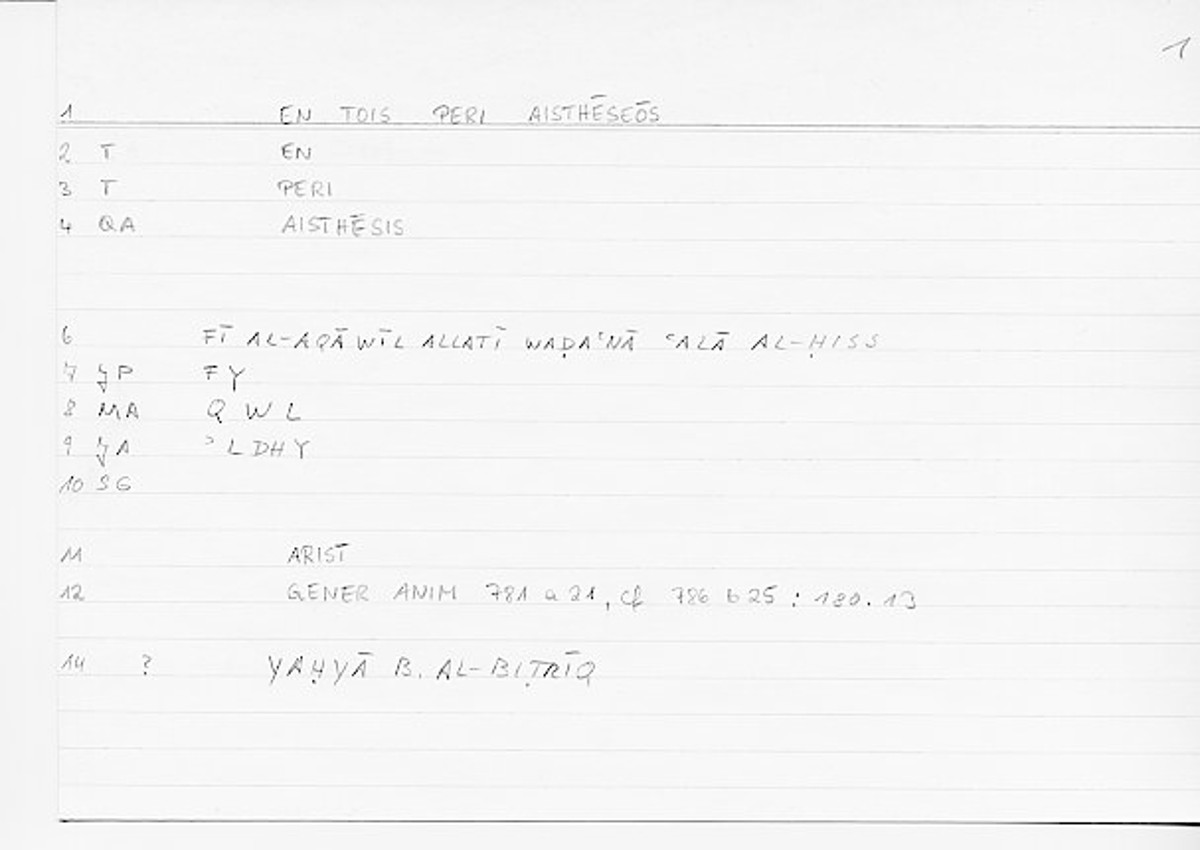 1
1 EN TOIS PERI AISTHĒSEŌS
2 T EN
3 T PERI
4 QA AISTHĒSIS
6 FĪ AL-AQĀWĪL ALLATĪ WAḌAʿNĀ ʿALĀ AL-ḤISS
7 JP FY
8 MA QWL
9 JA ʾLDHY
10 SG
11 ARIST
12 GENER ANIM 781 a 21, cf 786 b 25 : 180.13
14 ? YAḤYĀ B. AL-BIṬRĪQ